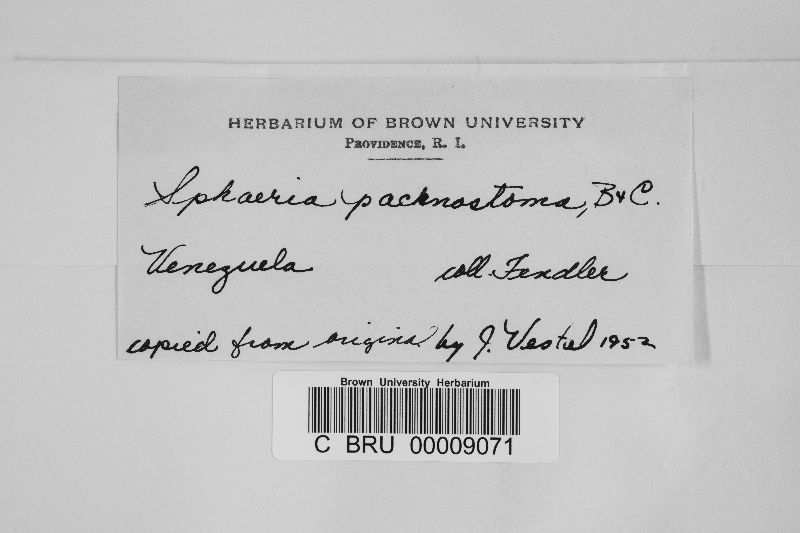 HERBARIUM OF BROWN UNIVERSITY
PROVIDENCE, R. I.
Sphaeria pachnostoma, B & C.
Venezuela coll. Fendler
copied from original by J. Vestal 1952
Brown University Herbarium
C BRU 00009071